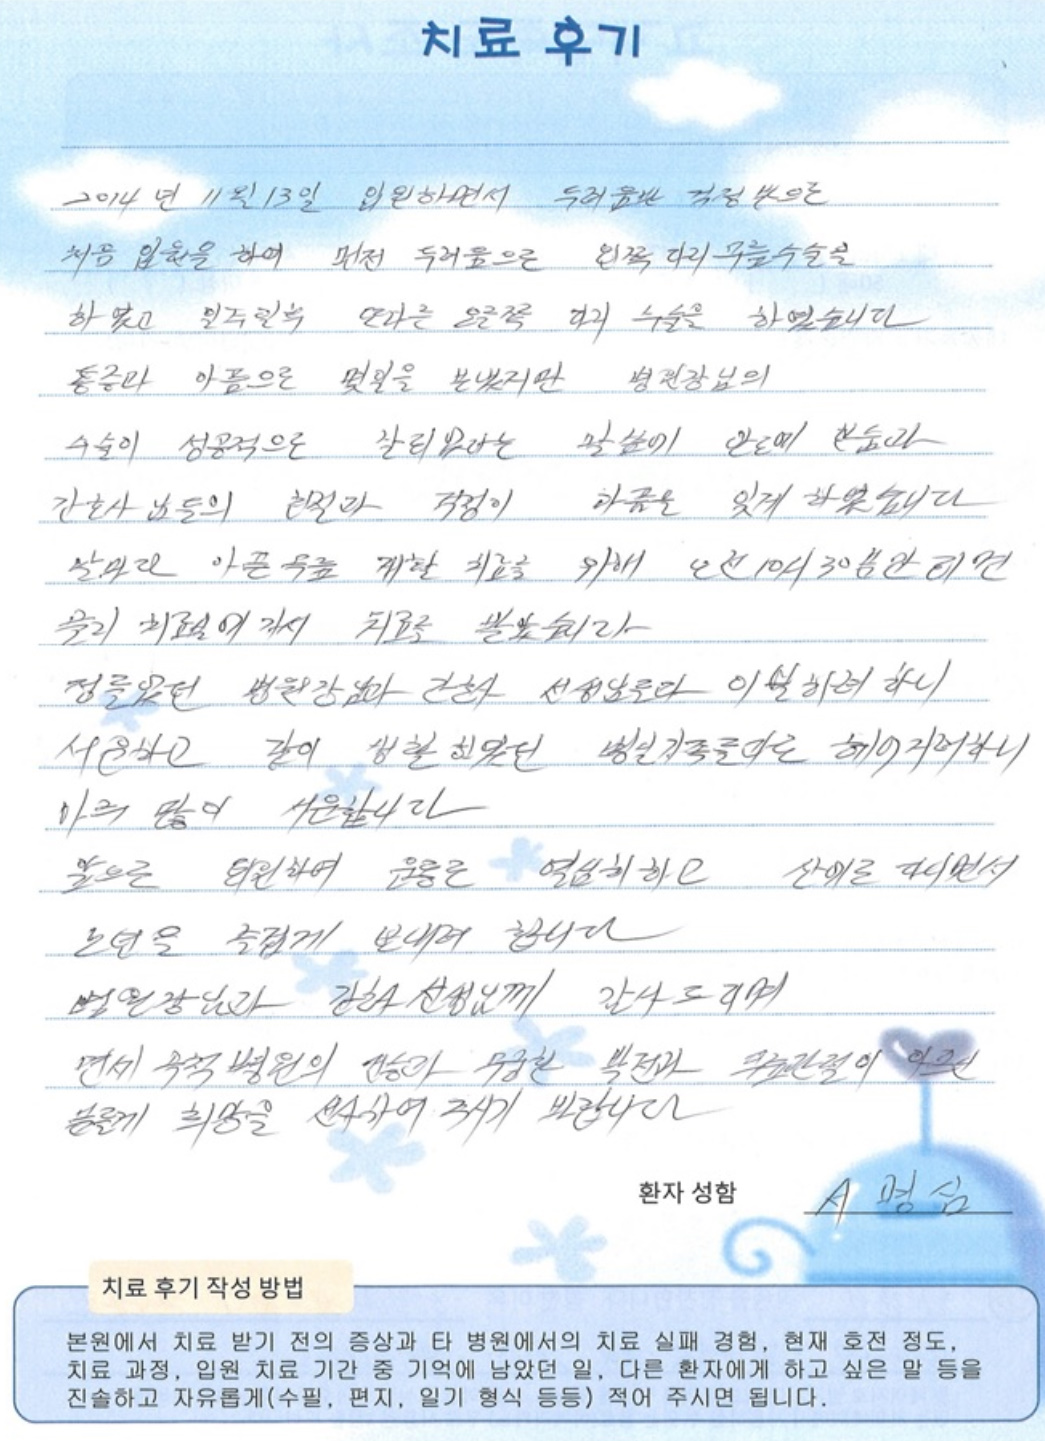 치료 후기
2014년 11월 13일 입원하면서 두려움과 걱정
처음 입원을 하여 먼저 두려움으로 왼쪽 다리 무릎수술을
하였고 일주일후 오른쪽 다리 수술을 하였습니다
통증과 아픔으로 몇일을 보냈지만 병원장님의
수술이 성공적으로 잘 말씀이
간호사님들의 친절과 걱정이 아픔을 잊게 하였습니다
날마다 아픈 무릎 재활 치료를 위해 오전 10시 30분만 되면
물리 치료실에 가서 치료를 받았습니다
정들었던 병원장님과 간호사 선생님들과 이별하려 하니
서운하고 같이 생활 하였던 헤어지려하니
아주 많이 서운합니다
앞으로 퇴원하여 운동도 열심히하고 산에도 다니면서
노년을 즐겁게 보내려 합니다
병원장님과 간호사 선생님께 감사드리며
연세 병원의 무궁한 발전과 무릎관절이 아프신
희망을 선사하여 주시기 바랍니다
환자 성함 A 명심
치료 후기 작성 방법
본원에서 치료 받기 전의 증상과 타 병원에서의 치료 실패 경험, 현재 호전 정도,
치료 과정, 입원 치료 기간 중 기억에 남았던 일, 다른 환자에게 하고 싶은 말 등을
진솔하고 자유롭게(수필, 편지, 일기 형식 등등) 적어 주시면 됩니다.